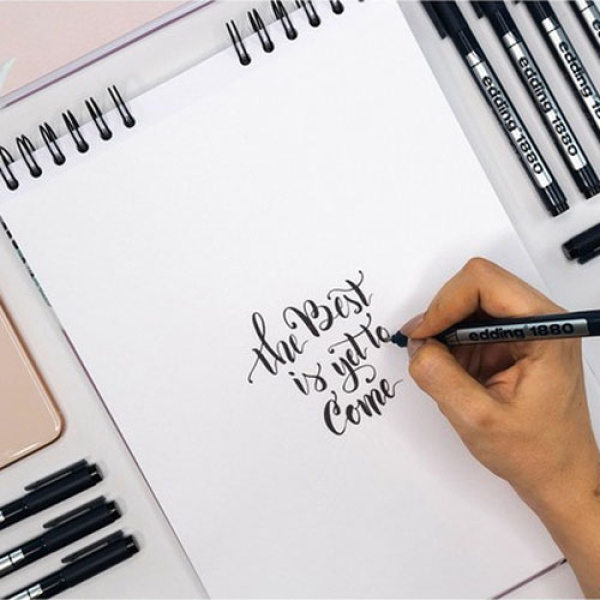 the Best
is yet to
Come
edding 1880
edding 1880
edding 1880
edding 1880